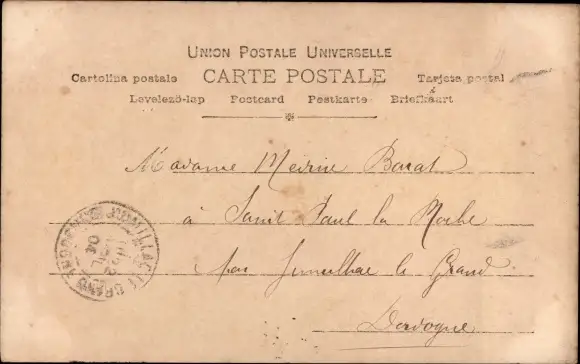 UNION POSTALE UNIVERSELLE
Cartolina postale CARTE POSTALE Tarjeta postal
Levelező-lap Postcard Postkarte Briefkaart
Madame Barat
à Saint Paul la Roche
par Jumilhac le Grand
Dordogne
JUMILLAC-LE GRAND DORDOGNE
04